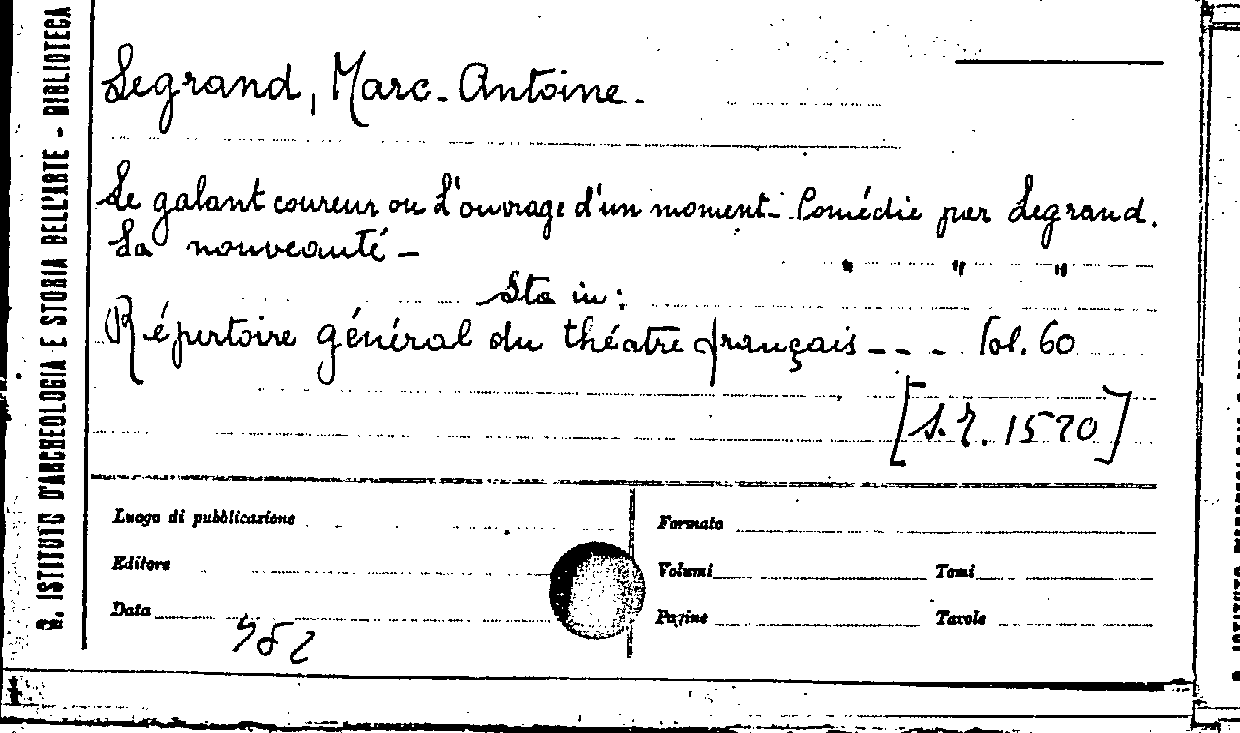 R. ISTITUTO D'ARCHEOLOGIA E STORIA DELL'ARTE - BIBLIOTECA
Legrand, Marc-Antoine.
Le galant coureur ou L'ouvrage d'un moment - Comédie par Legrand.
La nouveauté - " " "
Sta in:
Répertoire général du théatre français - - - Vol. 60
[S.R. 1570]
Luogo di pubblicazione
Editore
Data
Formato
Volumi Tomi
Pagine Tavole